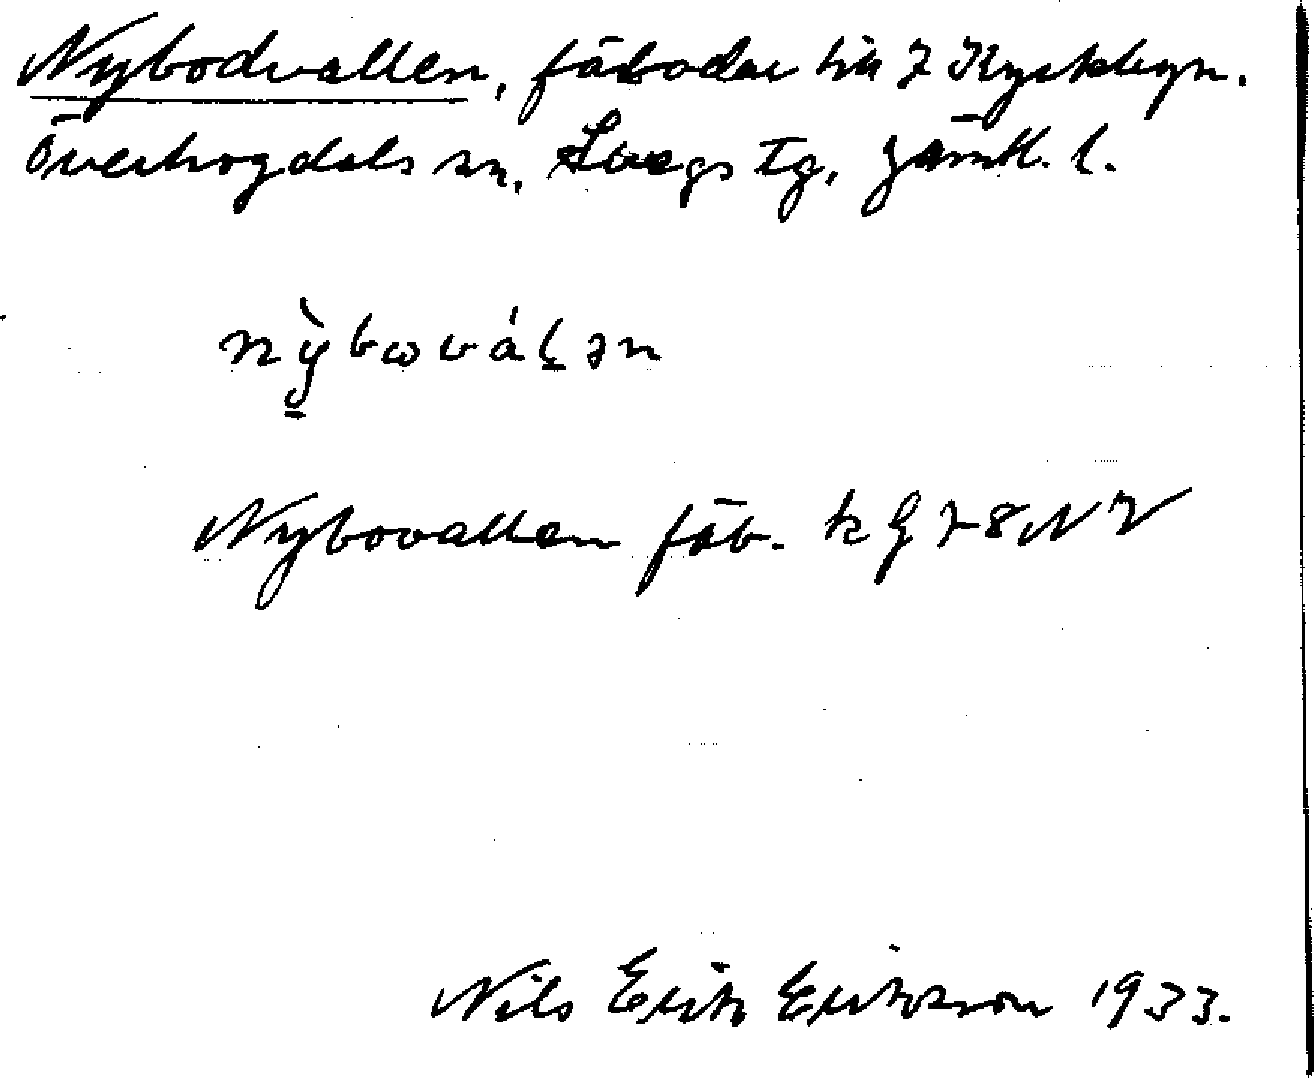 Nybodvallen, fäbodar till 7 Kyrkbyn.
Överhogdals sn, Svegs tg, Jämtl. l.
nỳbωváḷən
Nybovallen fäb. k G 78 NV
Nils Erik Eriksson 1933.